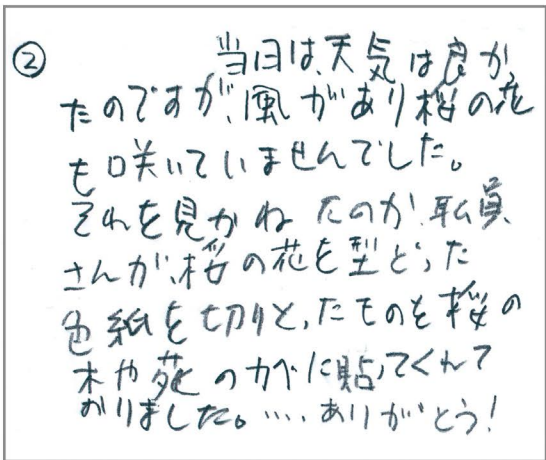 ② 当日は、天気は良かっ
たのですが、風があり桜の花
も咲いていませんでした。
それを見かねたのか、職員
さんが、桜の花を型どった
色紙を切りとったものを桜の
木や苑のカベに貼ってくれて
おりました。・・・・ありがとう!